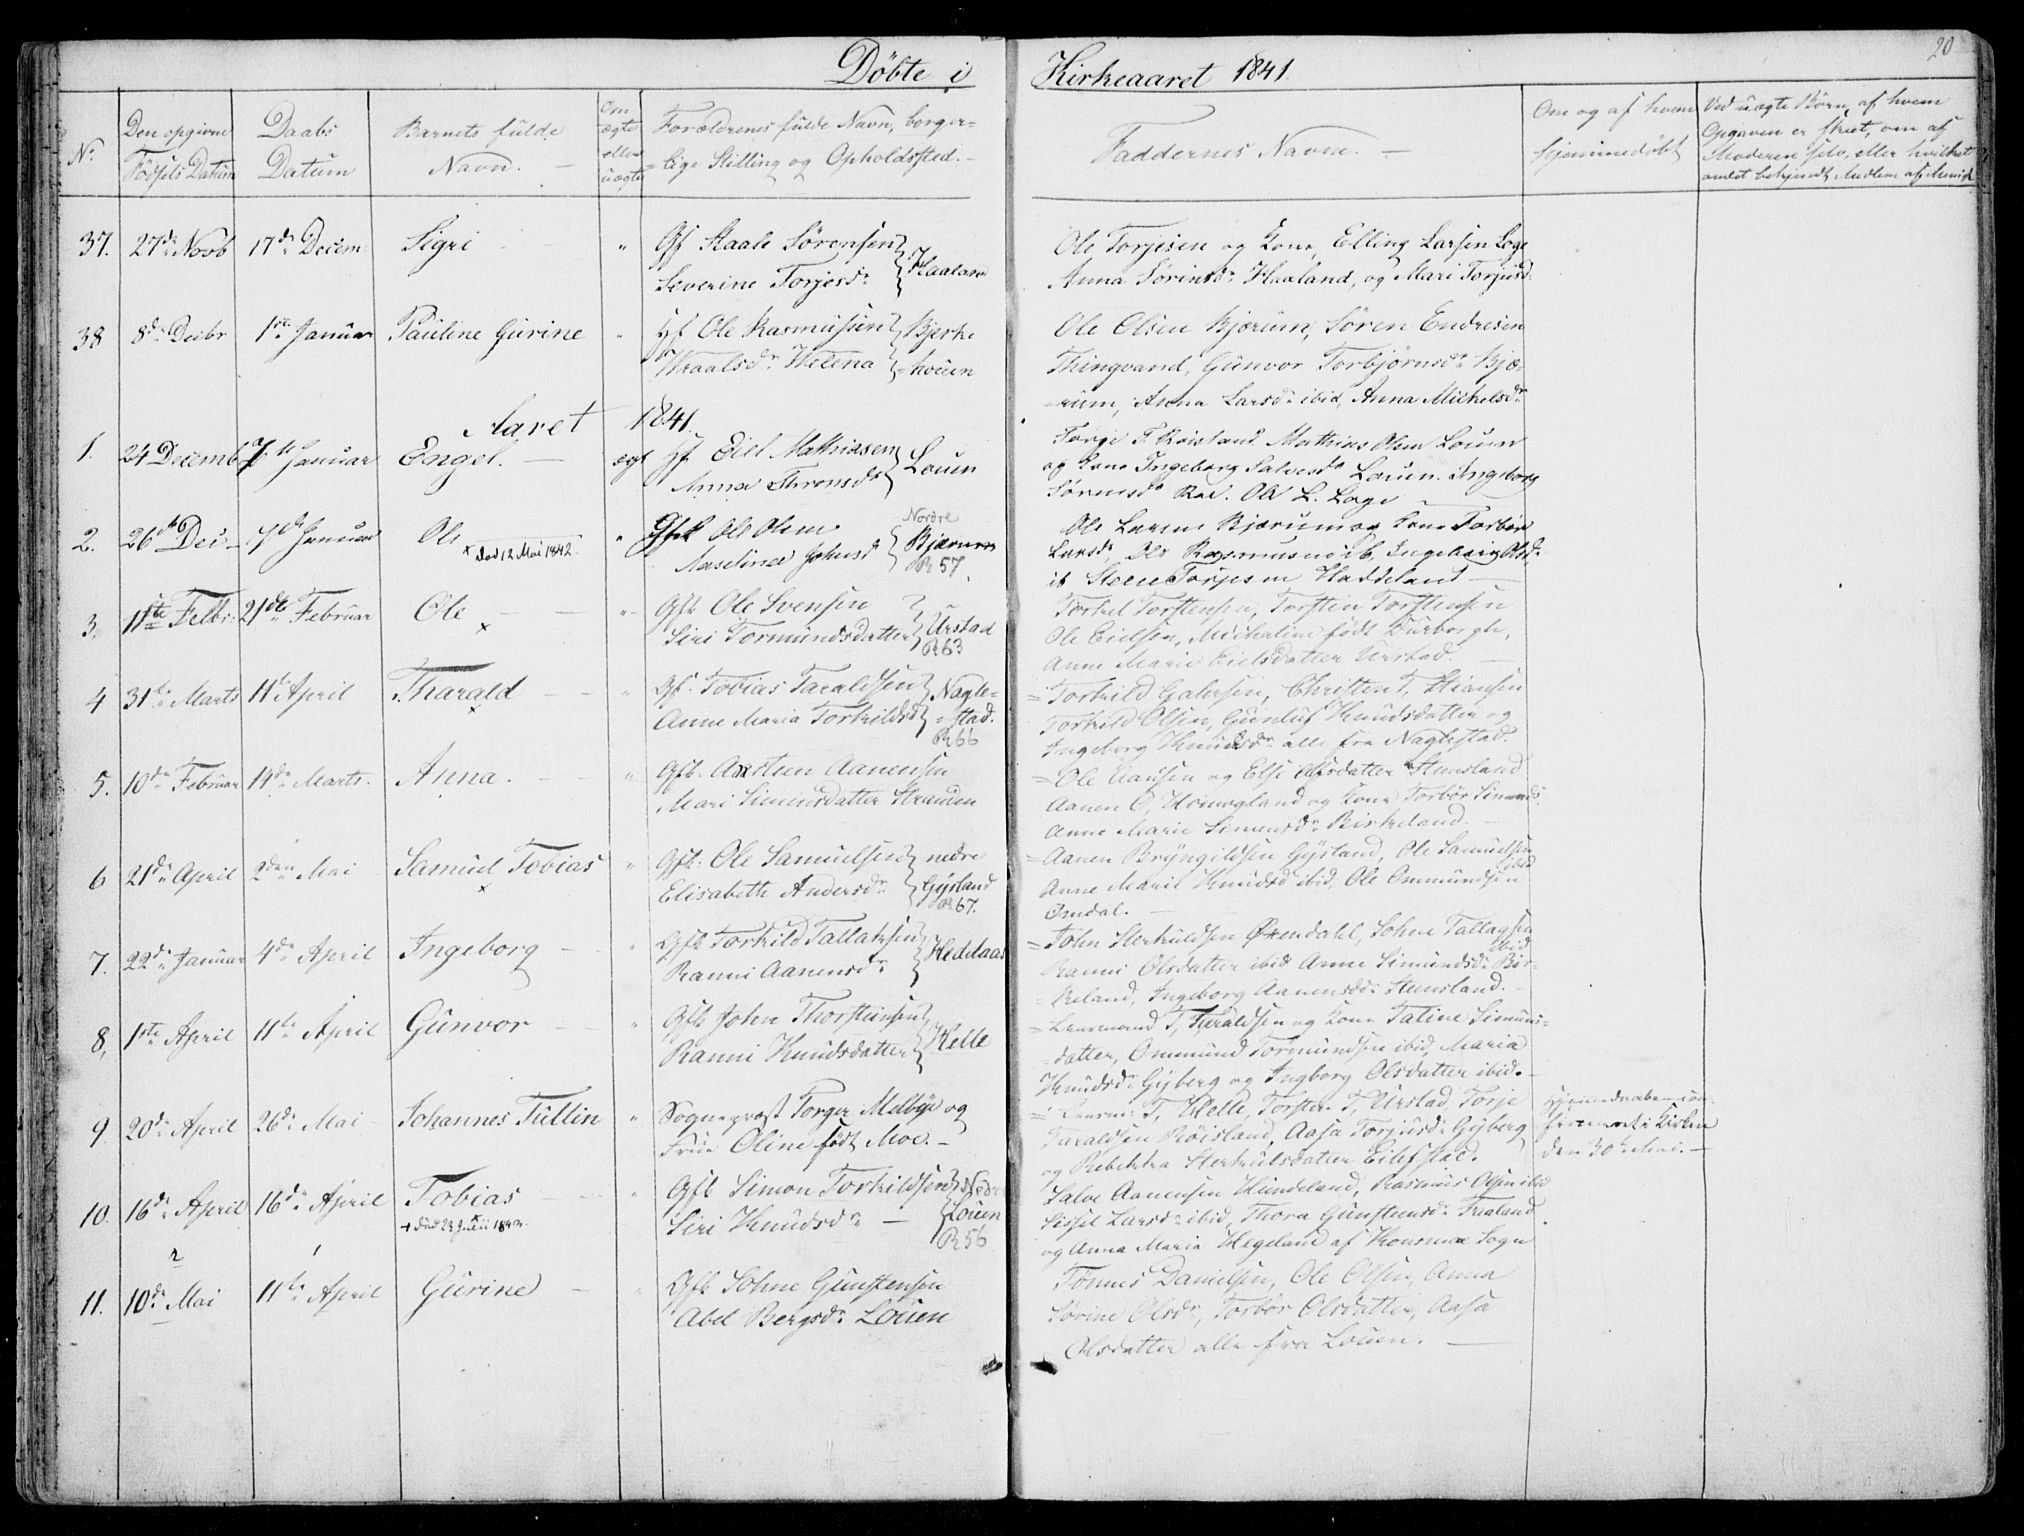 Döbte i Kirkeaaret 1841.
20
No
Den opgivne Födsels Datum
Daabs Datum
Barnets fulde Navn. —
Om ægte eller uægte
Forældrenes fulde Navn, borger=
=lige Stilling og Opholdsted. —
Faddernes Navne. —
Om og af hvem hjemmedöbt
Ved uægte Börn, af hvem
Opgaven er skeet, om af
Moderen selv, eller hvilket
andet bekjendt Medlem af Menigh
37. 27de Novb 17de Decem Sigri " Gf Staale Sörensen
Severine Torjesdr Haaland
Ole Torjesen og Kone, Elling Larsen Loge
Anna Sörensdr Haaland, og Mari Torjusd.
38 8de Decbr 1ste Januar Pauline Gurine " Hf Ole Rasmusen
Wraalsdr Helena Bjerke=houen
Ole Olsen Bjærum, Sören Endresen
Thingvand, Gunvor Torbjörnsdr Bjæ-
rum, Anna Larsdr ibid, Anna Michelsdr
Aaret 1841.
1. 24 Decemb 7de Januar Engel. — ægt Hf Eiel Mathiasen
Anna Thronsdr Louen
Torge T. Röisland Mathias Olsen Louen
og Kone Ingeborg Salvesdr Louen. Ingeborg
Sörensdr Ole L. Loge
2. 26de Dec 7de Januar Ole
x död 12 Mai 1842.
" Gfk Ole Olsen
Maselina Johnsd Nordre Bjærum
R 57.
Ole Larsen Bjærum og Kone Torbör
Larsdr Ole Rasmusen ib, Ingeborg Olsdr
ib Steen Torjesen Haddeland —
3. 11te Febr. 21de Februar Ole — x " Gfk Ole Svensen
Siri Tormundsdatter Urstad
R 63
Torkel Torstensen, Torsten Torstensen
Ole Eielsen, Michaline födt
Anne Marie Eielsdatter Urstad. —
4 31te Marts 11te April Tharald — x " Gf. Tobias Taraldsen
Anne Maria Torkildsd Nagle=
=stad.
R 66
Torkild Gahrsen, Christen T. Hansen
Torkild Olsen, Gunluf Knudsdatter og
Ingeborg Knudsdr alle fra Naglestad.
5. 10de Februar 14de Marts. Anna. — " Gfk. Aasteen Aanensen
Mari Simensdatter Stranden
Ole Hansen og Else Olsdatter Stensland
Aanen O. Homogland og Kone Torbör Simends
Anne Marie Simensdr Birkeland. —
6 21de April 2den Mai Samuel Tobias x " Gfk. Ole Samuelsen
Elisabeth Andersdr nedre Gysland
R 67.
Aanen Bryngildsen Gysland, Ole Samuelsen ibid
Anne Marie Knudsd ibid, Ole Ommundsen
Omdal. —
7. 22de Januar 4de April Ingeborg — " Gfk Torkild Tallaksen
Ranni Aanensdr Heddaas
John Herkuldsen Öxendahl, Sohne Tallagsen ibid
Ranni Olsdatter ibid Anne Simundsdr Bir=
=keland, Ingeborg Aanensdr Stensland. —
8, 1ste April 11te April Gunvor — " Gfk John Thorstensen
Ranni Knudsdatter Helle
Lensmand T, Taraldsen og Kone Tatine Simuns=
datter, Ommund Tormundsen ibid, Maria
Knudsdr Gyberg og Ingborg Olsdatter ibid. —
9 20de April 26de Mai Johannes Tullin " Sogneprest Torger Melbye og
Frue Oline födt Moe. —
Lensm: T, Helle, Torsten T, Urstad, Torje
Taraldsen Röisland, Aasa Torjusdr Gyberg
og Rebekka Herkulsdatter Eilefstad.
Hjemmedaaben con-
firmeret i Kirken
den 30te Mai. —
10. 16de April 16de April Tobias —
+ död 1842
" Gfk Simon Torkildsen
Siri Knudsdr — Nedre Louen
R 56
Salve Aanensen Hundeland, Rasmus Olsen ibid
Sissel Larsdr ibid, Thora Gunstensdr
og Anna Maria Hegeland af Konsmoe Sogn
2 1
11. 10de Mai 11te April Gurine — " Gfk Sohne Gunstensen
Abel Bergsdr Louen
Tönnes Danielsen, Ole Olsen, Anna
Sörine Olsdr, Torbör Olsdatter, Aasa
Olsdatter alle fra Louen. —